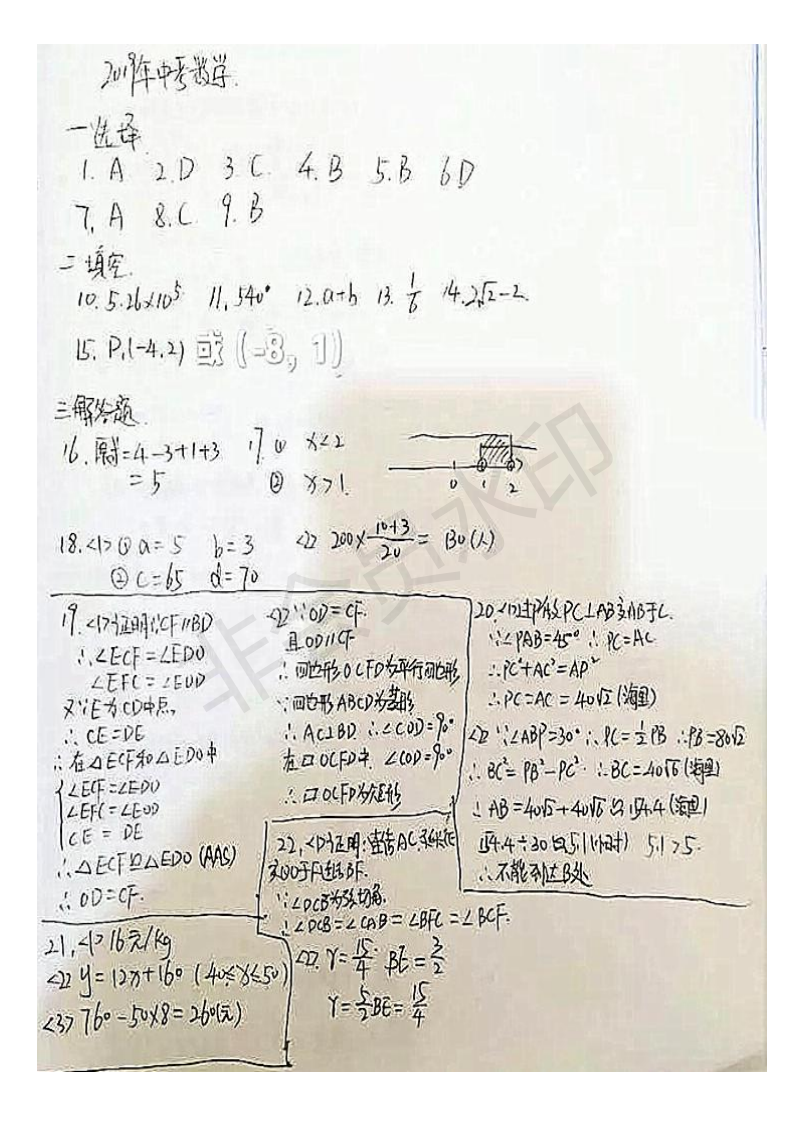 2019年中考数学.
一选择
1. A 2. D 3. C. 4. B 5. B 6 D
7. A 8. C. 9. B
二填空.
10. 5.26×10⁵ 11. 540° 12. a+b 13. 1/6 14. 2√2-2.
15. P₁(-4,2) 或 (-8, 1)
三解答题.
16. 原式=4-3+1+3
=5
17. ① x<2
② x>1.
0 1 2
18. <1> ① a=5 b=3
② c=65 d=70
<2> 200×(10+3)/20= 130(人)
19. <1>证明:∵CF∥BD
∴∠ECF=∠EDO
∠EFC=∠EOD
又∵E为CD中点,
∴CE=DE
∴在△ECF和△EDO中
∠ECF=∠EDO
∠EFC=∠EOD
CE = DE
∴△ECF≌△EDO (AAS)
∴OD=CF.
<2>∵OD=CF.
且OD∥CF
∴四边形OCFD为平行四边形
∵四边形ABCD为菱形
∴AC⊥BD ∴∠COD=90°
在□OCFD中. ∠COD=90°
∴□OCFD为矩形
20. <1>过P做PC⊥AB交AB于C.
∵∠PAB=45° ∴PC=AC
∴PC²+AC²=AP²
∴PC=AC=40√2(海里)
<2>∵∠ABP=30°∴PC=1/2PB ∴PB=80√2
∴BC²=PB²-PC² ∴BC=40√6(海里)
∴AB=40√2+40√6≈154.4(海里)
154.4÷30≈5.1(小时) 5.1>5.
∴不能到达B处
21. <1>16元/kg
<2> y=12x+160 (40≤x≤50)
<3>760-50×8=260(元)
22. <1>证明:连AC
交⊙O于F连结BF.
∵∠DCB为弦切角.
∴∠DCB=∠CAB=∠BFC=∠BCF.
<2>. r=15/4 BE=3/2
r=5/2BE=15/4
非会员水印